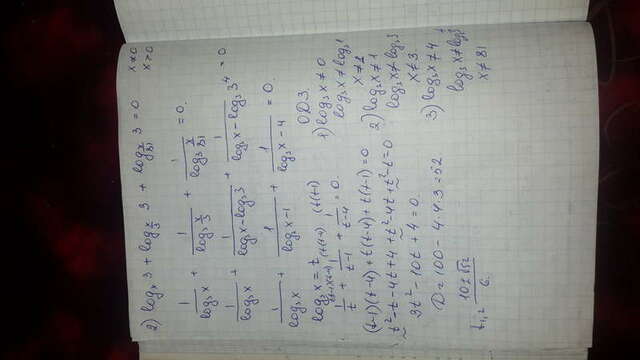 2) logₓ 3 + log_{x/3} 3 + log_{x/81} 3 = 0   x ≠ 0
x > 0
1/log₃ x + 1/log₃ (x/3) + 1/log₃ (x/81) = 0.
1/log₃ x + 1/(log₃ x - log₃ 3) + 1/(log₃ x - log₃ 3⁴) = 0.
1/log₃ x + 1/(log₃ x - 1) + 1/(log₃ x - 4) = 0.
log₃ x = t
1/t + 1/(t-1) + 1/(t-4) = 0.
(t-1)(t-4) + t(t-4) + t(t-1) = 0
t² - t - 4t + 4 + t² - 4t + t² - t = 0
3t² - 10t + 4 = 0.
D = 100 - 4·4·3 = 52
t₁,₂ = (10 ± √52)/6.
ОДЗ
1) log₃ x ≠ 0
log₃ x ≠ log₃ 1
x ≠ 1
2) log₃ x ≠ 1
log₃ x ≠ log₃ 3
x ≠ 3.
3) log₃ x ≠ 4
log₃ x ≠ log₃ 3⁴
x ≠ 81